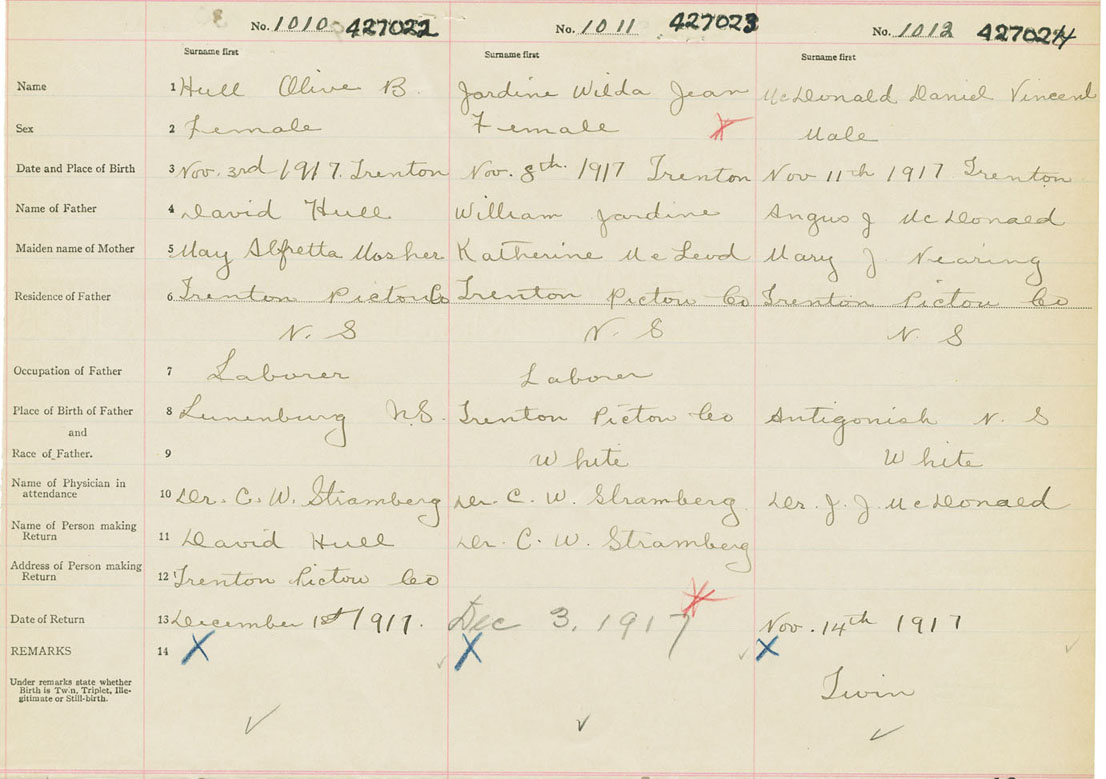 No. 1010 427022 No. 1011 427023 No. 1012 427024
Surname first Surname first Surname first
Name 1 Hull Olive B. Jardine Wilda Jean McDonald Daniel Vincent
Sex 2 Female Female Male
Date and Place of Birth 3 Nov. 3rd 1917. Trenton Nov. 8th. 1917 Trenton Nov 11th 1917 Trenton
Name of Father 4 David Hull William Jardine Angus J McDonald
Maiden name of Mother 5 May Alfretta Mosher Katherine McLeod Mary J. Nearing
Residence of Father 6 Trenton Pictou Co Trenton Pictou Co Trenton Pictou Co
N. S N. S N. S
Occupation of Father 7 Laborer Laborer
Place of Birth of Father 8 Lunenburg N.S. Trenton Pictou Co Antigonish N. S
and
Race of Father. 9 White White
Name of Physician in
attendance 10 Dr. C. W. Stramberg Dr. C. W. Stramberg Dr. J. J. McDonald
Name of Person making
Return 11 David Hull Dr. C. W. Stramberg
Address of Person making
Return 12 Trenton Pictou Co
Date of Return 13 December 1st 1917. Dec 3. 1917 Nov. 14th 1917
REMARKS 14 X X X
Under remarks state whether
Birth is Twin, Triplet, Ille-
gitimate or Still-birth.
Twin